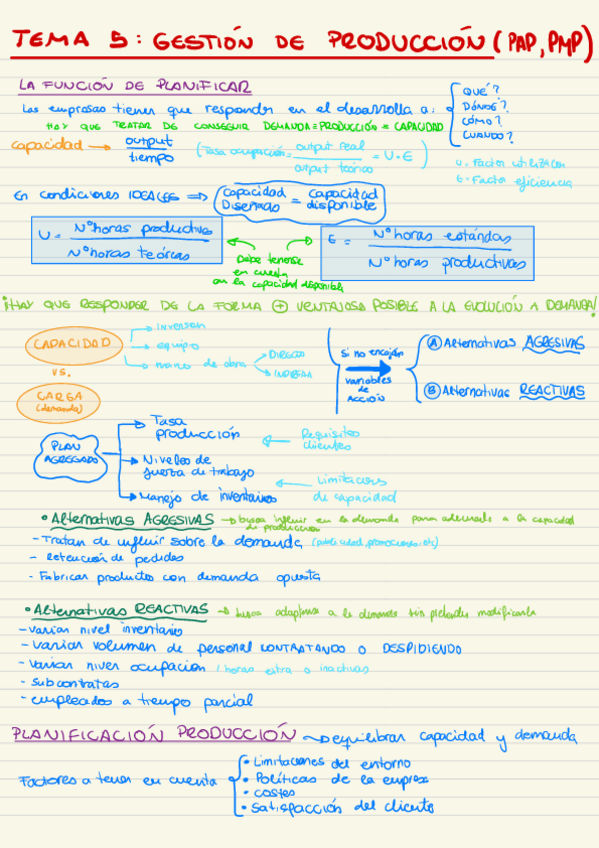 TEMA 5: GESTIÓN DE PRODUCCIÓN (PAP, PMP)
LA FUNCIÓN DE PLANIFICAR
Las empresas tienen que responder en el desarrollo a:
QUÉ?
DÓNDE?
CÓMO?
CUANDO?
HAY QUE TRATAR DE CONSEGUIR DEMANDA = PRODUCCIÓN = CAPACIDAD
capacidad → output / tiempo
(Tasa ocupación = output real / output teórico = U·E)
U = Factor utilización
E = Factor eficiencia
En condiciones IDEALES ⇒ Capacidad Diseñada = Capacidad disponible
U = Nº horas productivas / Nº horas teóricas
Debe tenerse
en cuenta
en la capacidad disponible
E = Nº horas estándas / Nº horas productivas
¡HAY QUE RESPONDER DE LA FORMA ⊕ VENTAJOSA POSIBLE A LA EVOLUCIÓN A DEMANDA!
CAPACIDAD
inversión
equipo
mano de obra
DIRECTA
INDIRECTA
VS.
CARGA
(demanda)
Si no encajan
variables
DE
ACCIÓN
Ⓐ Alternativas AGRESIVAS
Ⓑ Alternativas REACTIVAS
PLAN
AGREGADO
Tasa
producción
Requisitos
clientes
Niveles de
fuerza de trabajo
Manejo de inventarios
Limitaciones
de capacidad
• Alternativas AGRESIVAS → busca influir en la demanda para adecuarla a la capacidad
de producción
- Tratan de influir sobre la demanda (publicidad, promociones, etc)
- Retención de pedidos
- Fabricar productos con demanda opuesta
• Alternativas REACTIVAS → busca adaptarse a la demanda sin pretender modificarla
- Variar nivel inventario
- Variar volumen de personal CONTRATANDO O DESPIDIENDO
- Variar nivel ocupación / horas extra o inactivas
- Subcontratas
- empleados a tiempo parcial
PLANIFICACIÓN PRODUCCIÓN → equilibrar capacidad y demanda
Factores a tener en cuenta
• Limitaciones del entorno
• Políticas de la empresa
• costes
• Satisfacción del cliente